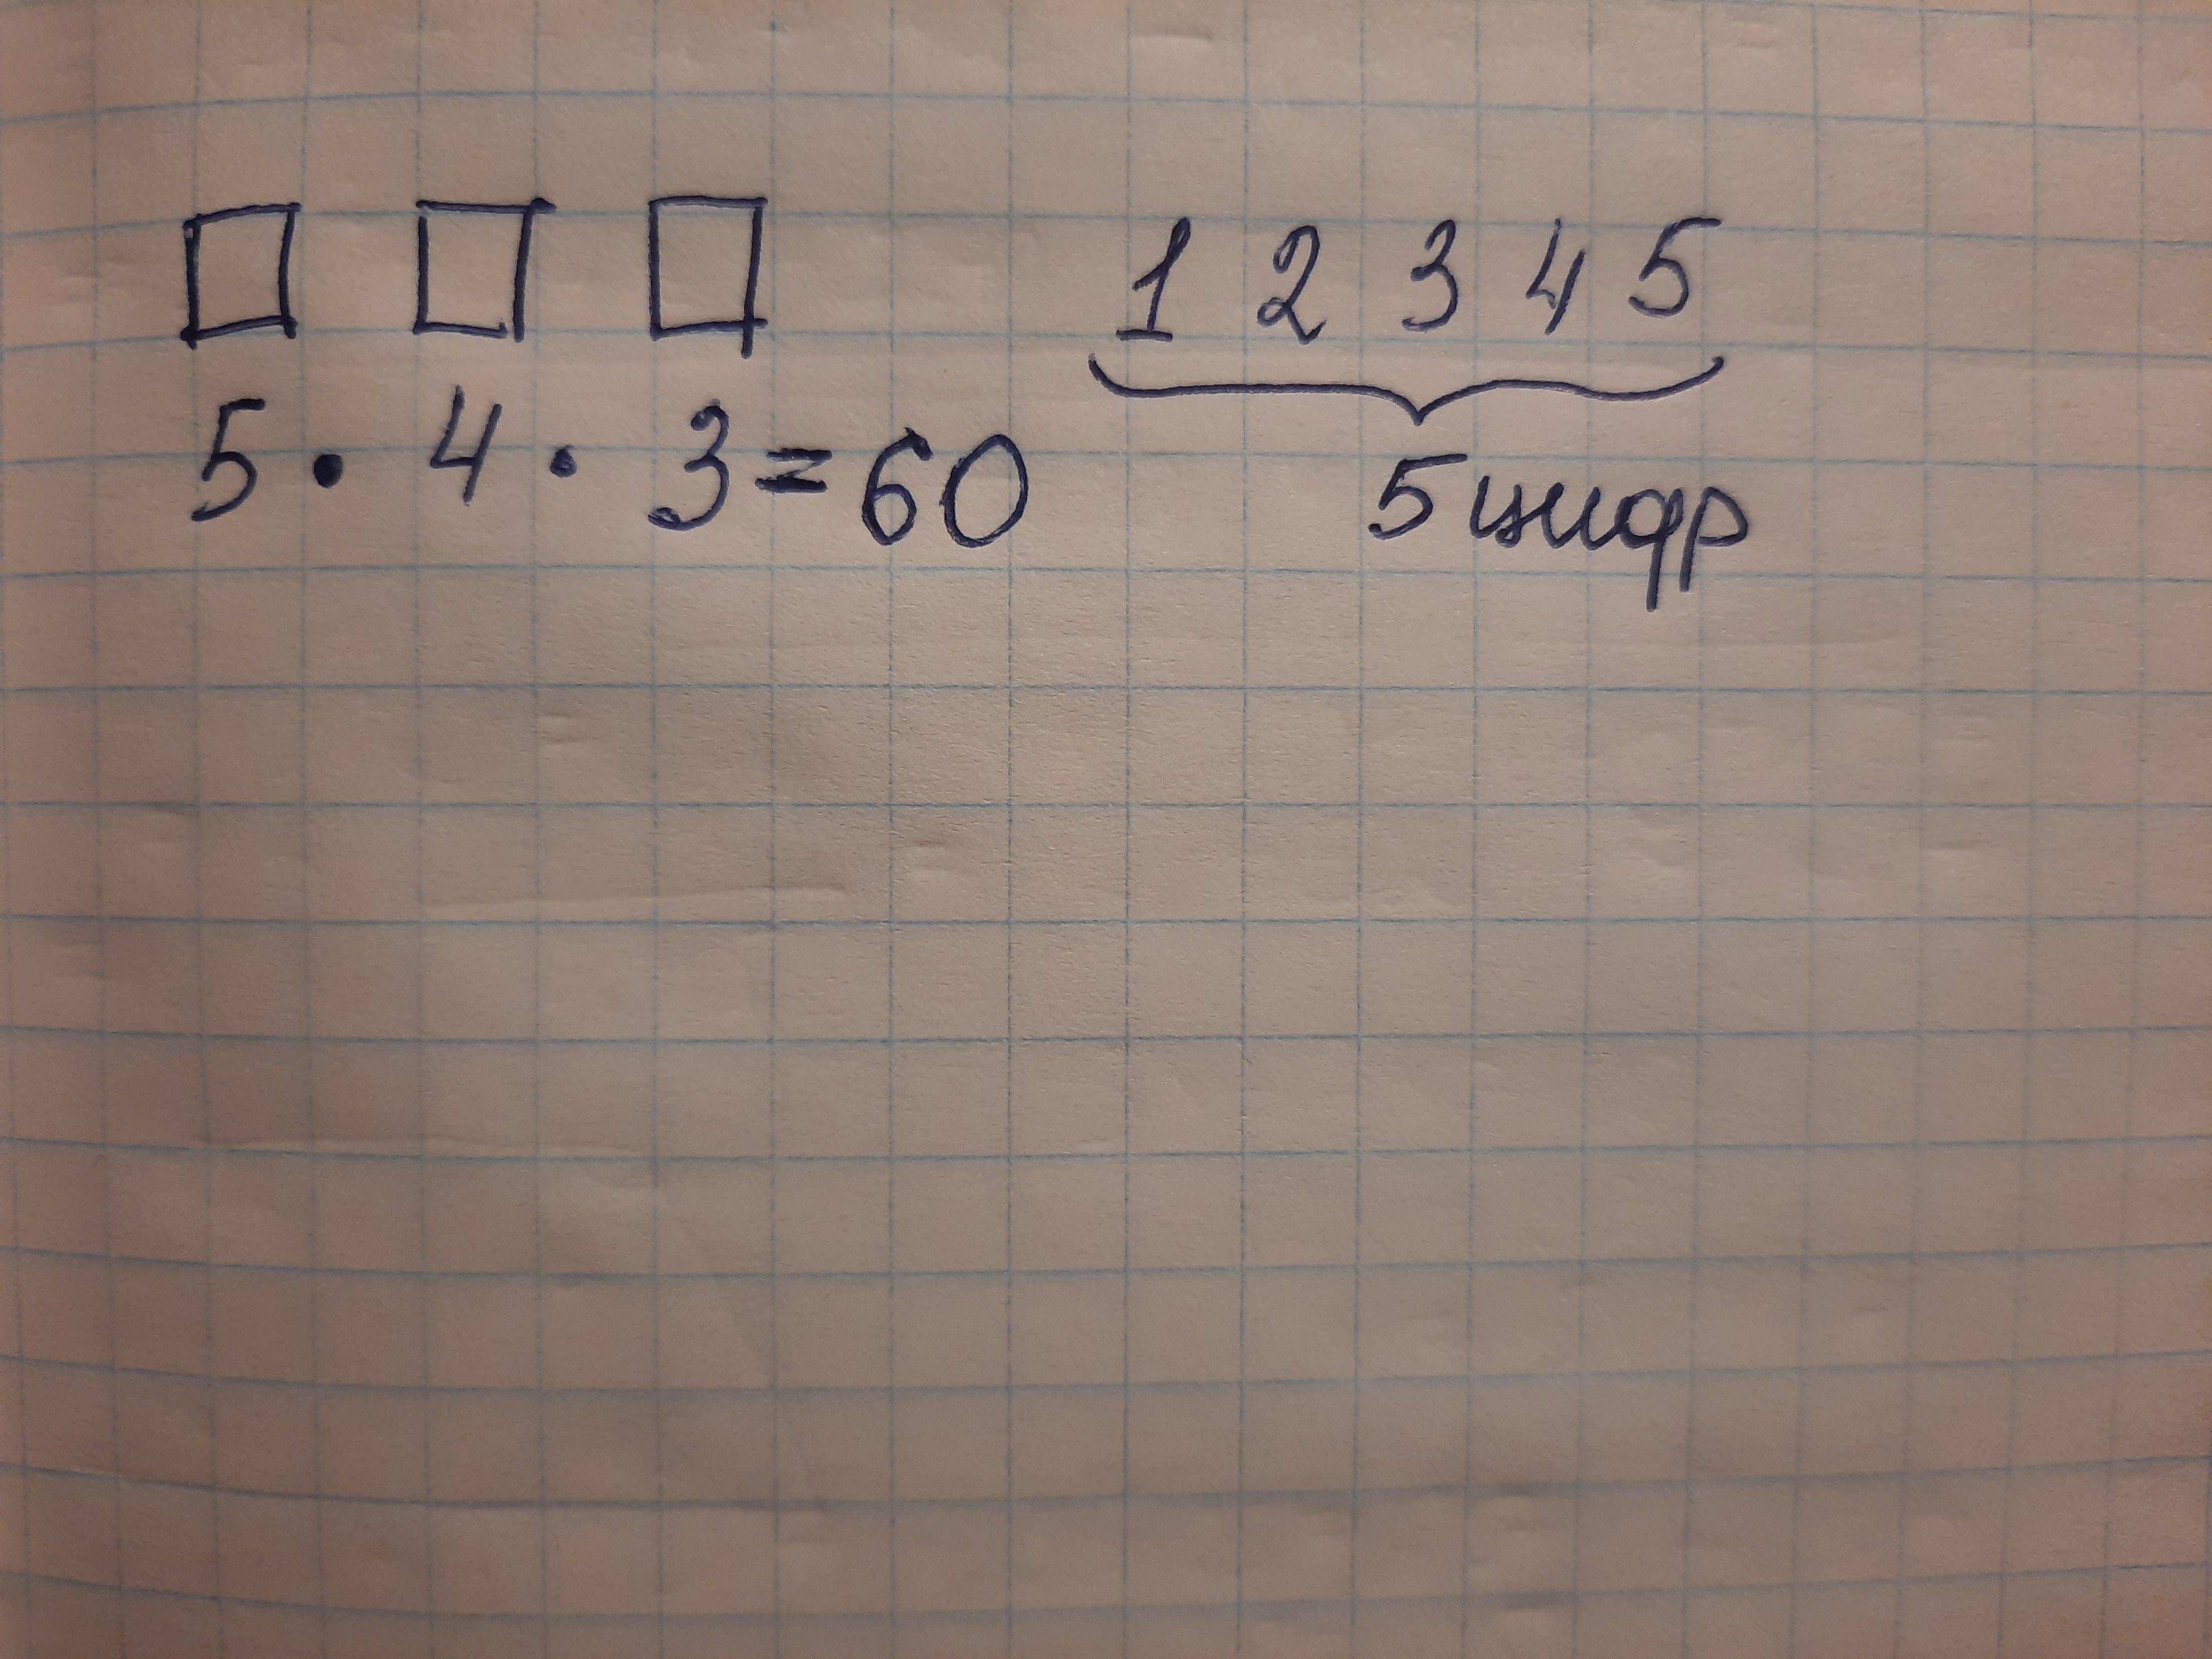 □ □ □ 1 2 3 4 5
5 · 4 · 3 = 60 5 цифр